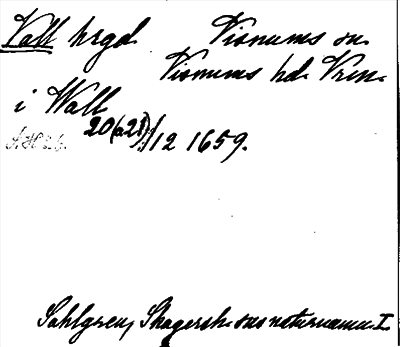 Vall hrgd. Visnums sn.
Visnums hd. Vrm.
i Wall
20(a21)/12 1659.
Sahlgren, Skagersh. sns naturnamn I.